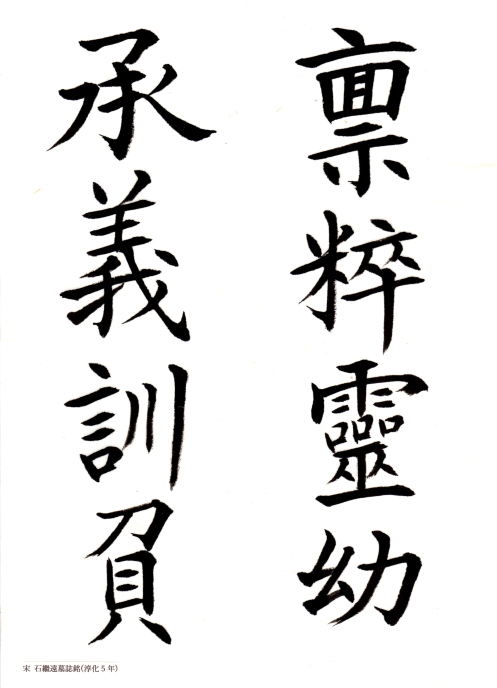 禀粹靈幼
承義訓負
宋 石繼遠墓誌銘(淳化5年)